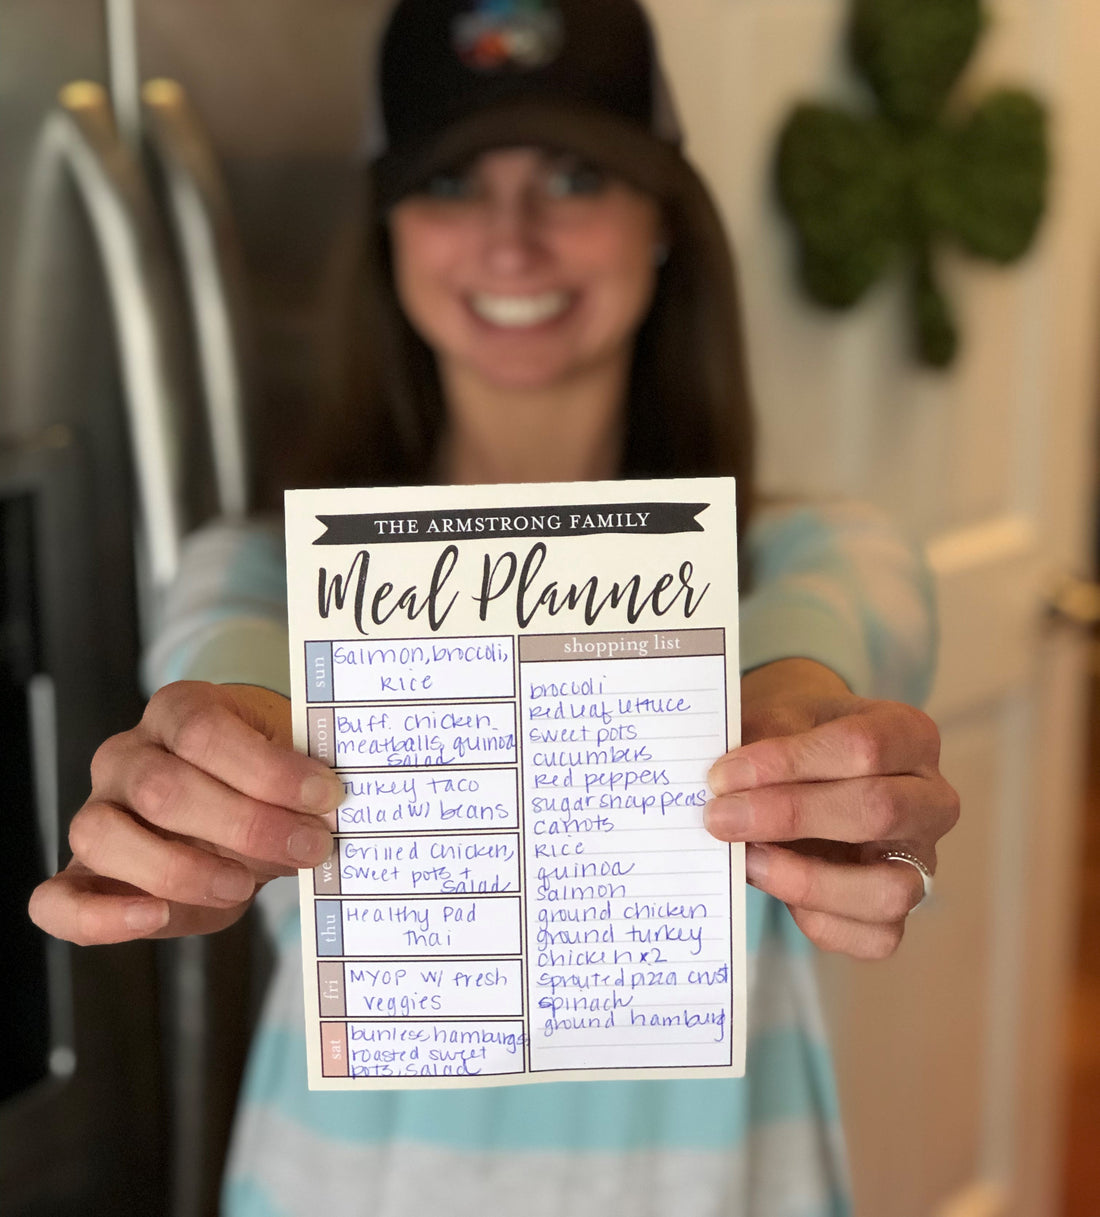 THE ARMSTRONG FAMILY
Meal Planner
sun
Salmon, broccoli,
Rice
mon
Buff. chicken
meatballs, quinoa
salad
Turkey taco
salad w/ beans
we
Grilled chicken,
sweet pots +
salad
thu
Healthy Pad
Thai
fri
MYOP w/ fresh
veggies
sat
bunless hamburgs,
roasted sweet
pots, salad
shopping list
broccoli
Red leaf lettuce
sweet pots
cucumbers
Red peppers
sugar snap peas
carrots
Rice
quinoa
salmon
ground chicken
ground turkey
chicken x2
sprouted pizza crust
spinach
ground hamburg